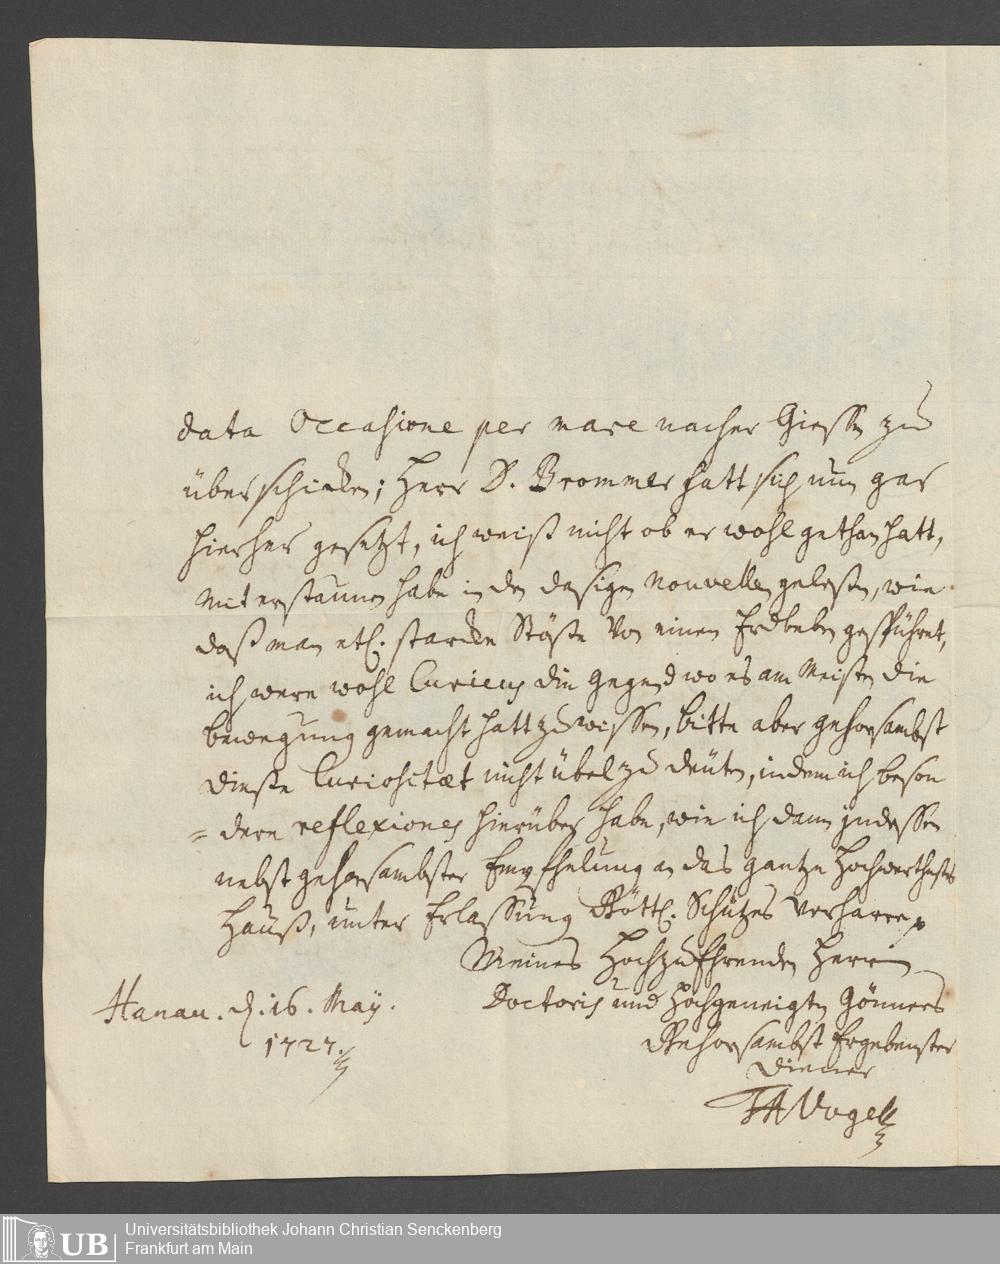 data Occasione per mare nacher Giessen zu
überschicken; Herr D. Brommer hatt sich nun gar
hierher gesetzt, ich weiß nicht ob er wohl gethan hatt,
Mit erstaunen habe in den dasigen Nouvellen gelesen, wie
daß man etl. starcke Stöße Von einen Erdbeben gespühret,
ich were wohl Curieus die gegend wo es am Meisten die
bewegung gemacht hatt zu wissen, bitte aber gehorsambst
dieße Curiositæt nicht übel zu deüten, indem ich beson
= dere reflexiones hierüber habe, wie ich dann jndessen
nebst gehorsambster Empfhelung an das gantze Hochwertheste
Hauß, unter Erlassung Göttl. Schutzes verharre
Meines HochzuEhrenden Herrn
Doctoris und Hochgeneigten Gönners
Hanau. d. 16. Maÿ.
1727.
Gehorsambst Ergebenster
Diener
JA Vogel
Universitätsbibliothek Johann Christian Senckenberg
Frankfurt am Main
UB